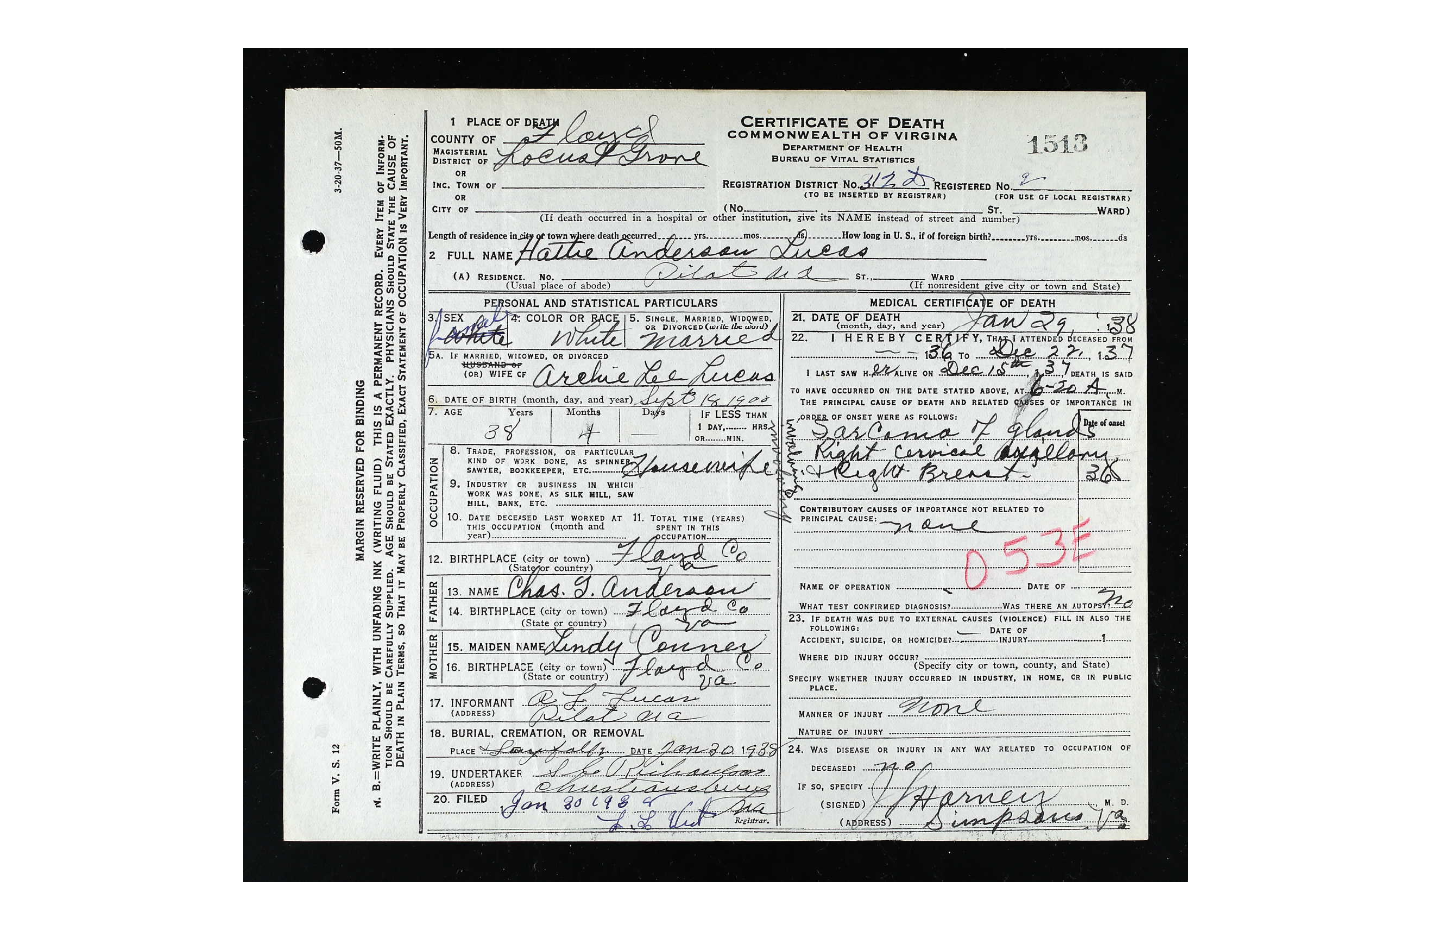 3-20-37—50M.
MARGIN RESERVED FOR BINDING
N. B.—WRITE PLAINLY, WITH UNFADING INK (WRITING FLUID) THIS IS A PERMANENT RECORD. EVERY ITEM OF INFORM-
TION SHOULD BE CAREFULLY SUPPLIED. AGE SHOULD BE STATED EXACTLY. PHYSICIANS SHOULD STATE THE CAUSE OF
DEATH IN PLAIN TERMS, SO THAT IT MAY BE PROPERLY CLASSIFIED, EXACT STATEMENT OF OCCUPATION IS VERY IMPORTANT.
Form V. S. 12
1 PLACE OF DEATH
COUNTY OF Floyd
MAGISTERIAL DISTRICT OF Locust Grove
OR
INC. TOWN OF
OR
CITY OF
CERTIFICATE OF DEATH
COMMONWEALTH OF VIRGINIA
DEPARTMENT OF HEALTH
BUREAU OF VITAL STATISTICS
1513
REGISTRATION DISTRICT NO. 312 D REGISTERED NO. 2
(TO BE INSERTED BY REGISTRAR) (FOR USE OF LOCAL REGISTRAR)
(NO. ST. WARD)
(If death occurred in a hospital or other institution, give its NAME instead of street and number)
Length of residence in city or town where death occurred yrs. mos. ds. How long in U. S., if of foreign birth? yrs. mos. ds
2 FULL NAME Hattie Anderson Lucas
(A) RESIDENCE. NO. Pilot Va ST., WARD
(Usual place of abode) (If nonresident give city or town and State)
PERSONAL AND STATISTICAL PARTICULARS
3. SEX female White
4. COLOR OR RACE White
5. SINGLE, MARRIED, WIDOWED, OR DIVORCED (write the word) Married
5A. IF MARRIED, WIDOWED, OR DIVORCED
HUSBAND OF
(OR) WIFE OF Archie Lee Lucas
6. DATE OF BIRTH (month, day, and year) Sept 18 1900
7. AGE Years Months Days IF LESS THAN
38 4 — 1 DAY, HRS.
OR MIN.
OCCUPATION
8. TRADE, PROFESSION, OR PARTICULAR
KIND OF WORK DONE, AS SPINNER,
SAWYER, BOOKKEEPER, ETC. Housewife
9. INDUSTRY OR BUSINESS IN WHICH
WORK WAS DONE, AS SILK MILL, SAW
MILL, BANK, ETC.
10. DATE DECEASED LAST WORKED AT THIS OCCUPATION (month and year)
11. TOTAL TIME (YEARS) SPENT IN THIS OCCUPATION
12. BIRTHPLACE (city or town) Floyd Co
(State or country) Va
FATHER
13. NAME Chas. G. Anderson
14. BIRTHPLACE (city or town) Floyd Co
(State or country) Va
MOTHER
15. MAIDEN NAME Lindy Conner
16. BIRTHPLACE (city or town) Floyd Co
(State or country) Va
17. INFORMANT A L Lucas
(ADDRESS) Pilot Va
18. BURIAL, CREMATION, OR REMOVAL
PLACE DATE Jan 30 1938
19. UNDERTAKER Richardson
(ADDRESS) Christiansburg Va
20. FILED Jan 30 1938
Registrar.
MEDICAL CERTIFICATE OF DEATH
21. DATE OF DEATH
(month, day, and year) Jan 29, 1938
22. I HEREBY CERTIFY, THAT I ATTENDED DECEASED FROM
— — 136 TO Dec 22, 137
I LAST SAW HER ALIVE ON Dec 15th, 37 DEATH IS SAID
TO HAVE OCCURRED ON THE DATE STATED ABOVE, AT 6-20 A. M.
THE PRINCIPAL CAUSE OF DEATH AND RELATED CAUSES OF IMPORTANCE IN
ORDER OF ONSET WERE AS FOLLOWS: Date of onset
Sarcoma of glands
involving
Right Cervical axillary
& Right Breast 36
CONTRIBUTORY CAUSES OF IMPORTANCE NOT RELATED TO
PRINCIPAL CAUSE: none
053E
NAME OF OPERATION DATE OF
WHAT TEST CONFIRMED DIAGNOSIS? WAS THERE AN AUTOPSY? No
23. IF DEATH WAS DUE TO EXTERNAL CAUSES (VIOLENCE) FILL IN ALSO THE
FOLLOWING:
ACCIDENT, SUICIDE, OR HOMICIDE? — DATE OF INJURY 1
WHERE DID INJURY OCCUR?
(Specify city or town, county, and State)
SPECIFY WHETHER INJURY OCCURRED IN INDUSTRY, IN HOME, OR IN PUBLIC
PLACE.
MANNER OF INJURY None
NATURE OF INJURY
24. WAS DISEASE OR INJURY IN ANY WAY RELATED TO OCCUPATION OF
DECEASED? no
IF SO, SPECIFY
(SIGNED) Harney M. D.
(ADDRESS) Simpsons, Va